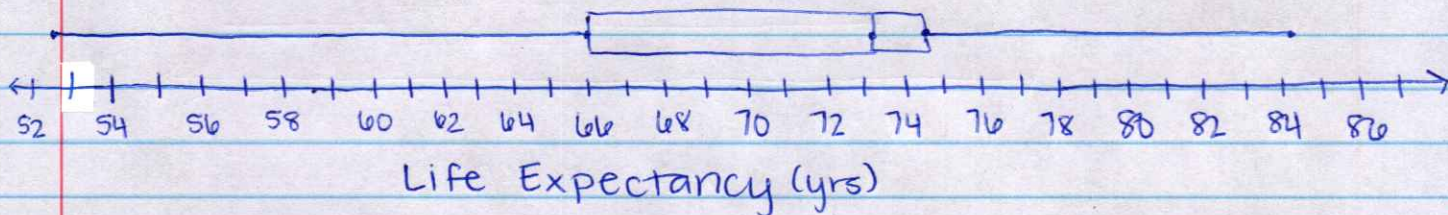 52 54 56 58 60 62 64 66 68 70 72 74 76 78 80 82 84 86
Life Expectancy (yrs)